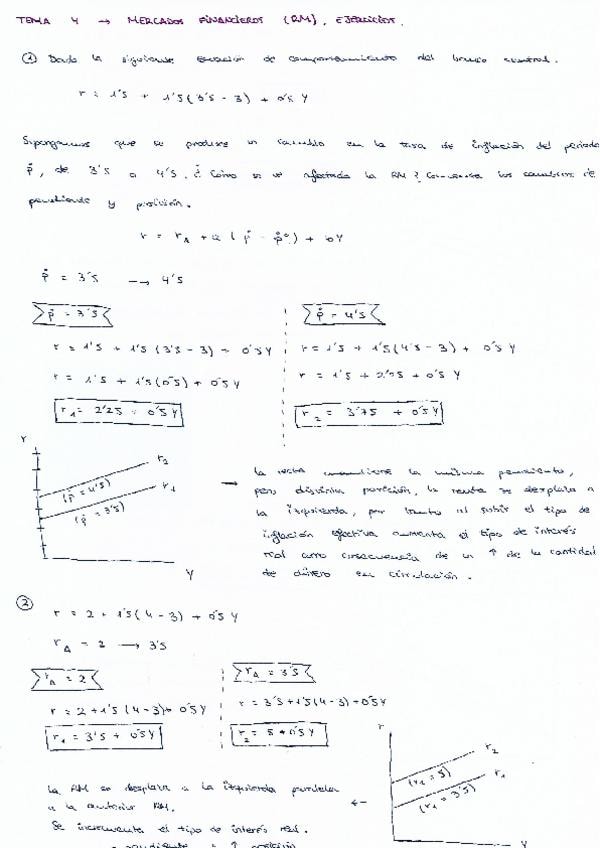 TEMA 4 → MERCADOS FINANCIEROS (RM). EJERCICIOS.
① Dada la siguiente ecuación de comportamiento del banco central.
r = 1'5 + 1'5(3'5 - 3) + 0'5 Y
Supongamos que se produce un cambio en la tasa de inflación del periodo
ṗ, de 3'5 a 4'5. ¿Cómo se ve afectada la RM? Comenta los cambios de
pendiente y posición.
r = rA + a (ṗ - ṗ°) + bY
ṗ = 3'5 → 4'5
ṗ = 3'5
ṗ = 4'5
r = 1'5 + 1'5(3'5 - 3) + 0'5Y
r = 1'5 + 1'5(4'5 - 3) + 0'5 Y
r = 1'5 + 1'5(0'5) + 0'5Y
r = 1'5 + 2'25 + 0'5Y
r1 = 2'25 + 0'5Y
r2 = 3'75 + 0'5Y
r
r2
(ṗ = 4'5)
r1
(ṗ = 3'5)
Y
→ La recta mantiene la misma pendiente,
pero distinta posición, la renta se desplaza a
la izquierda, por tanto al subir el tipo de
inflación efectiva aumenta el tipo de interés
real como consecuencia de un ↑ de la cantidad
de dinero en circulación.
②
r = 2 + 1'5(4 - 3) + 0'5Y
rA = 2 → 3'5
rA = 2
rA = 3'5
r = 2 + 1'5(4-3) + 0'5Y
r = 3'5 + 1'5(4-3) + 0'5Y
r1 = 3'5 + 0'5Y
r2 = 5 + 0'5Y
r
r2
(r1 = 5)
r1
(r1 = 3'5)
Y
La RM se desplaza a la izquierda paralela
a la anterior RM.
Se incrementa el tipo de interés real.
= pendiente ↑ posición